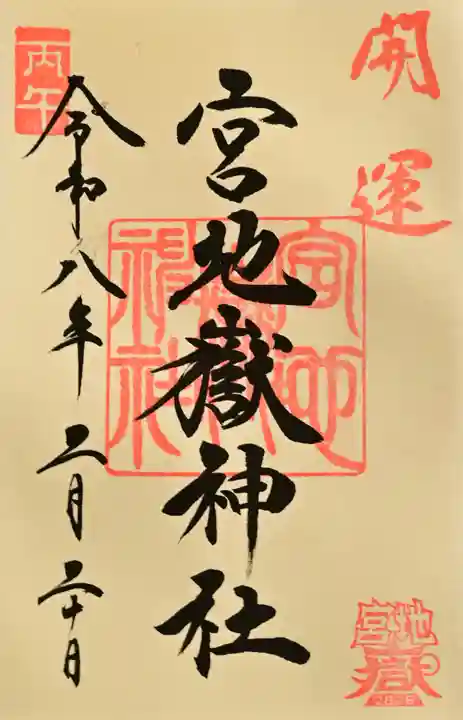 開運
宮地嶽神社
丙午
令和八年二月二十日
宮地嶽